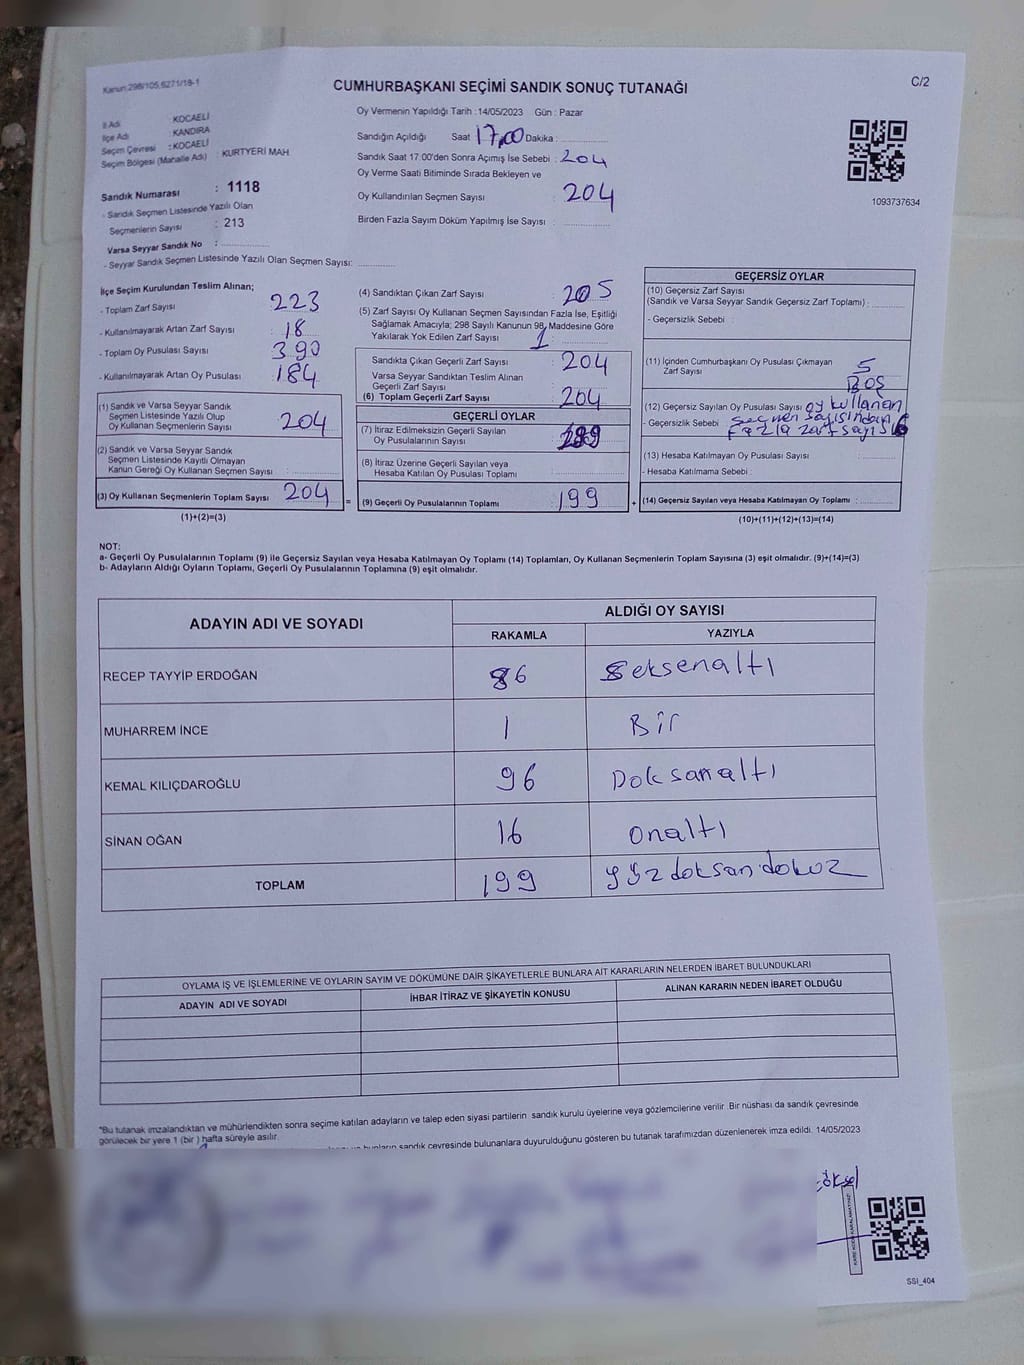 Kanun:298/105,6271/18-1
CUMHURBAŞKANI SEÇİMİ SANDIK SONUÇ TUTANAĞI
C/2
İl Adı : KOCAELİ
İlçe Adı : KANDIRA
Seçim Çevresi : KOCAELİ
Seçim Bölgesi (Mahalle Adı) : KURTYERİ MAH
Sandık Numarası : 1118
- Sandık Seçmen Listesinde Yazılı Olan
Seçmenlerin Sayısı : 213
Varsa Seyyar Sandık No :
- Seyyar Sandık Seçmen Listesinde Yazılı Olan Seçmen Sayısı:
Oy Vermenin Yapıldığı Tarih :14/05/2023 Gün : Pazar
Sandığın Açıldığı Saat 17,00 Dakika :
Sandık Saat 17:00'den Sonra Açımış İse Sebebi : 204
Oy Verme Saati Bitiminde Sırada Bekleyen ve
Oy Kullandırılan Seçmen Sayısı : 204
Birden Fazla Sayım Döküm Yapılmış İse Sayısı :
1093737634
İlçe Seçim Kurulundan Teslim Alınan;
- Toplam Zarf Sayısı : 223
- Kullanılmayarak Artan Zarf Sayısı : 18
- Toplam Oy Pusulası Sayısı : 390
- Kullanılmayarak Artan Oy Pusulası : 184
(1) Sandık ve Varsa Seyyar Sandık
Seçmen Listesinde Yazılı Olup
Oy Kullanan Seçmenlerin Sayısı : 204
(2) Sandık ve Varsa Seyyar Sandık
Listesinde Kayıtlı Olmayan
Kanun Gereği Oy Kullanan Seçmen Sayısı :
(3) Oy Kullanan Seçmenlerin Toplam Sayısı : 204 =
(1)+(2)=(3)
(4) Sandıktan Çıkan Zarf Sayısı : 205
(5) Zarf Sayısı Oy Kullanan Seçmen Sayısından Fazla İse, Eşitliği
Sağlamak Amacıyla; 298 Sayılı Kanunun 98. Maddesine Göre
Yakılarak Yok Edilen Zarf Sayısı : 1
Sandıkta Çıkan Geçerli Zarf Sayısı : 204
Varsa Seyyar Sandıktan Teslim Alınan
Geçerli Zarf Sayısı :
(6) Toplam Geçerli Zarf Sayısı : 204
GEÇERLİ OYLAR
(7) İtiraz Edilmeksizin Geçerli Sayılan
Oy Pusulalarının Sayısı :
(8) İtiraz Üzerine Geçerli Sayılan veya
Hesaba Katılan Oy Pusulası Toplamı :
(9) Geçerli Oy Pusulalarının Toplamı : 199 +
GEÇERSİZ OYLAR
(10) Geçersiz Zarf Sayısı
(Sandık ve Varsa Seyyar Sandık Geçersiz Zarf Toplamı) :
- Geçersizlik Sebebi :
(11) İçinden Cumhurbaşkanı Oy Pusulası Çıkmayan
Zarf Sayısı : 5
BOŞ
(12) Geçersiz Sayılan Oy Pusulası Sayısı oy kullanan
- Geçersizlik Sebebi seçmen sayısından
Fazla zarf sayısı
(13) Hesaba Katılmayan Oy Pusulası Sayısı :
- Hesaba Katılmama Sebebi :
(14) Geçersiz Sayılan veya Hesaba Katılmayan Oy Toplamı :
(10)+(11)+(12)+(13)=(14)
NOT:
a- Geçerli Oy Pusulalarının Toplamı (9) ile Geçersiz Sayılan veya Hesaba Katılmayan Oy Toplamı (14) Toplamları, Oy Kullanan Seçmenlerin Toplam Sayısına (3) eşit olmalıdır. (9)+(14)=(3)
b- Adayların Aldığı Oyların Toplamı, Geçerli Oy Pusulalarının Toplamına (9) eşit olmalıdır.
ADAYIN ADI VE SOYADI
ALDIĞI OY SAYISI
RAKAMLA YAZIYLA
RECEP TAYYİP ERDOĞAN 86 Seksenaltı
MUHARREM İNCE 1 Bir
KEMAL KILIÇDAROĞLU 96 Doksanaltı
SİNAN OĞAN 16 onaltı
TOPLAM 199 yüzdoksandokuz
OYLAMA İŞ VE İŞLEMLERİNE VE OYLARIN SAYIM VE DÖKÜMÜNE DAİR ŞİKAYETLERLE BUNLARA AİT KARARLARIN NELERDEN İBARET BULUNDUKLARI
ADAYIN ADI VE SOYADI İHBAR İTİRAZ VE ŞİKAYETİN KONUSU ALINAN KARARIN NEDEN İBARET OLDUĞU
*Bu tutanak imzalandıktan ve mühürlendikten sonra seçime katılan adayların ve talep eden siyasi partilerin sandık kurulu üyelerine veya gözlemcilerine verilir. Bir nüshası da sandık çevresinde
görülecek bir yere 1 (bir ) hafta süreyle asılır.
bunların sandık çevresinde bulunanlara duyurulduğunu gösteren bu tutanak tarafımızdan düzenlenerek imza edildi. 14/05/2023
SSI_404